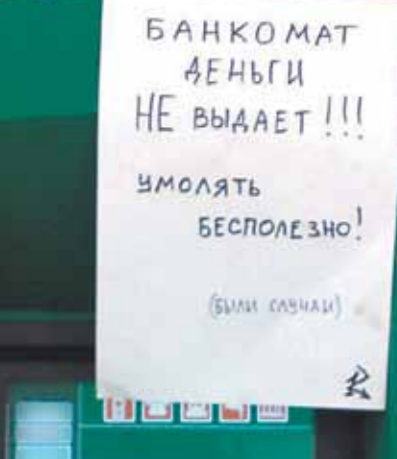 БАНКОМАТ
ДЕНЬГИ
НЕ ВЫДАЕТ!!!
УМОЛЯТЬ
БЕСПОЛЕЗНО!
(БЫЛИ СЛУЧАИ)